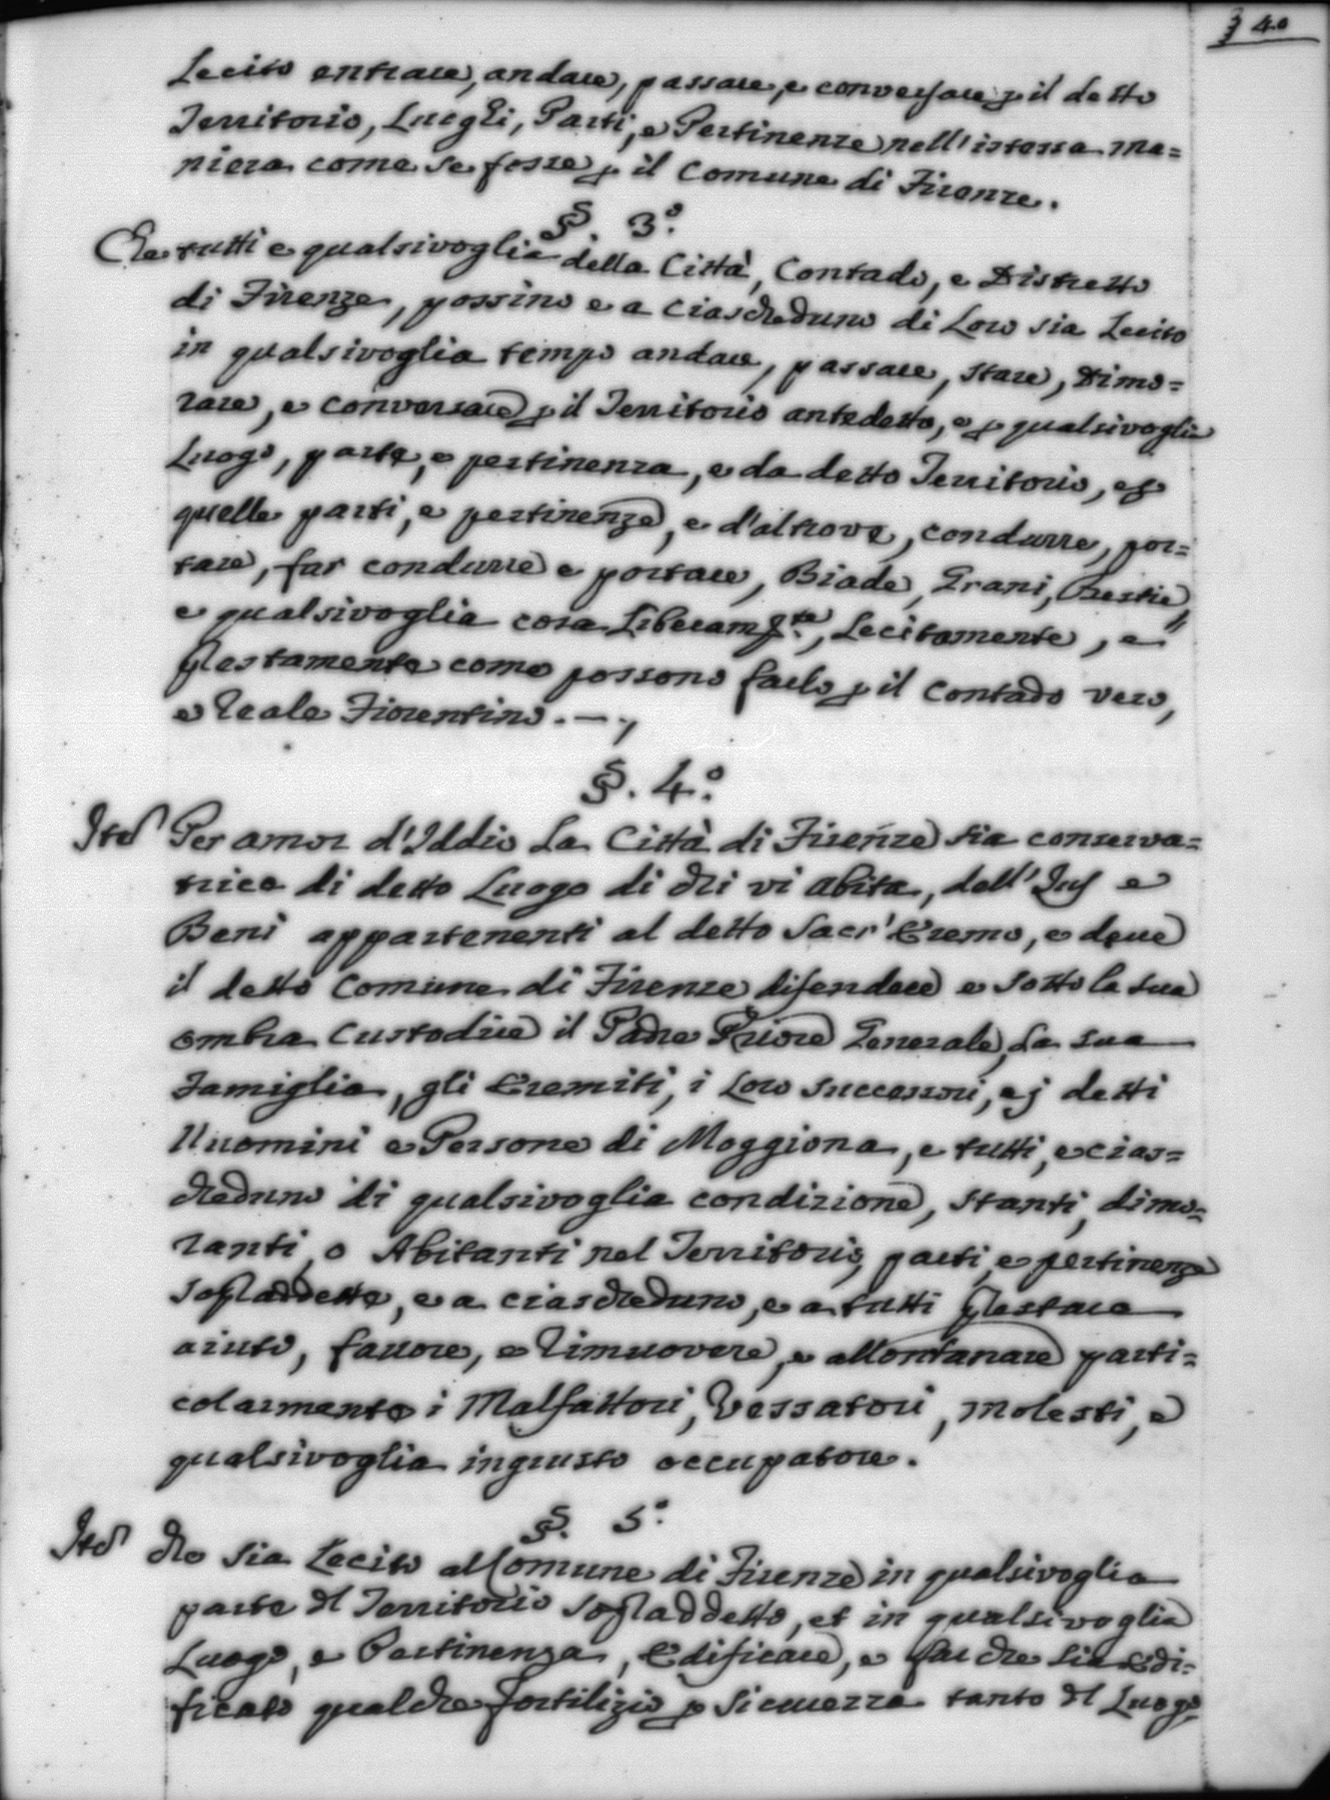 § 40
Lecito entrare, andare, passare, e conversare p il detto
Territorio, Luoghi, Parti, e Pertinenze nell'istessa ma=
niera come se fosse p il Comune di Firenze.
§. 3.°
Che tutti e qualsivoglia della Città, Contado, e Distretto
di Firenze, possino e a ciascheduno di Loro sia Lecito
in qualsivoglia tempo andare, passare, stare, Dimo=
rare, e conversare p il Territorio antedetto, e p qualsivoglia
Luogo, parte, e pertinenza, e da detto Territorio, e p
quelle parti, e pertinenze, e d'altrove, condurre, por=
tare, far condurre e portare, Biade, Grani, Bestie,
e qualsivoglia cosa Liberam.te, Lecitamente, e
Prestamente come possono farlo p il Contado vero,
e Reale Fiorentino. —,
§. 4.°
Ite Per amor d'Iddio La Città di Firenze sia conserva=
trice di detto Luogo di chi vi abita, dell'Jus e
Beni appartenenti al detto Sacr'Eremo, e deve
il detto Comune di Firenze difendere e sotto la sua
ombra Custodire il Padre Priore Generale, La sua
Famiglia, gli Eremiti, i Loro successori, e j detti
Uuomini e Persone di Moggiona, e tutti, e cias=
cheduno di qualsivoglia condizione, stanti, dimo=
ranti, o Abitanti nel Territorio, parti, e pertinenze
Sopraddette, e a ciascheduno, e a tutti Prestare
aiuto, favore, e Rimuovere, e allontanare parti=
colarmente i Malfattori, Vessatori, molesti, e
qualsivoglia ingiusto occupatore.
§. 5.°
Ite che sia Lecito al Comune di Firenze in qualsivoglia
parte dl Territorio Sopraddetto, et in qualsivoglia
Luogo, e Pertinenza, Edificare, e far che sia Edi=
ficato qualche fortilizio p sicurezza tanto dl Luogo